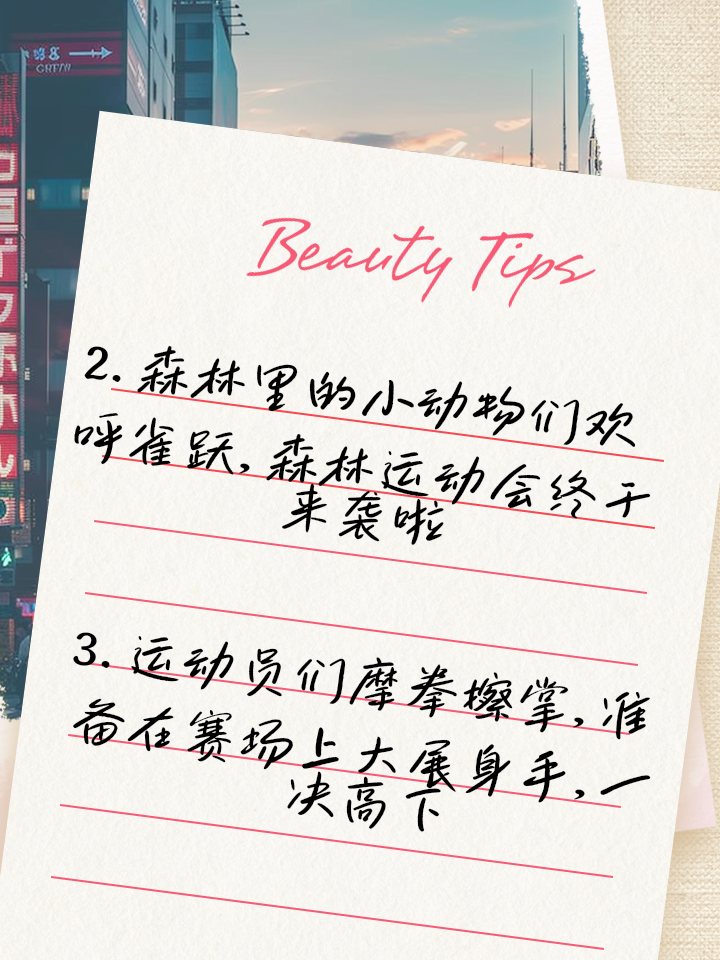 Beauty Tips
2. 森林里的小动物们欢
呼雀跃,森林运动会终于
来袭啦
3. 运动员们摩拳擦掌,准
备在赛场上大展身手,一
决高下